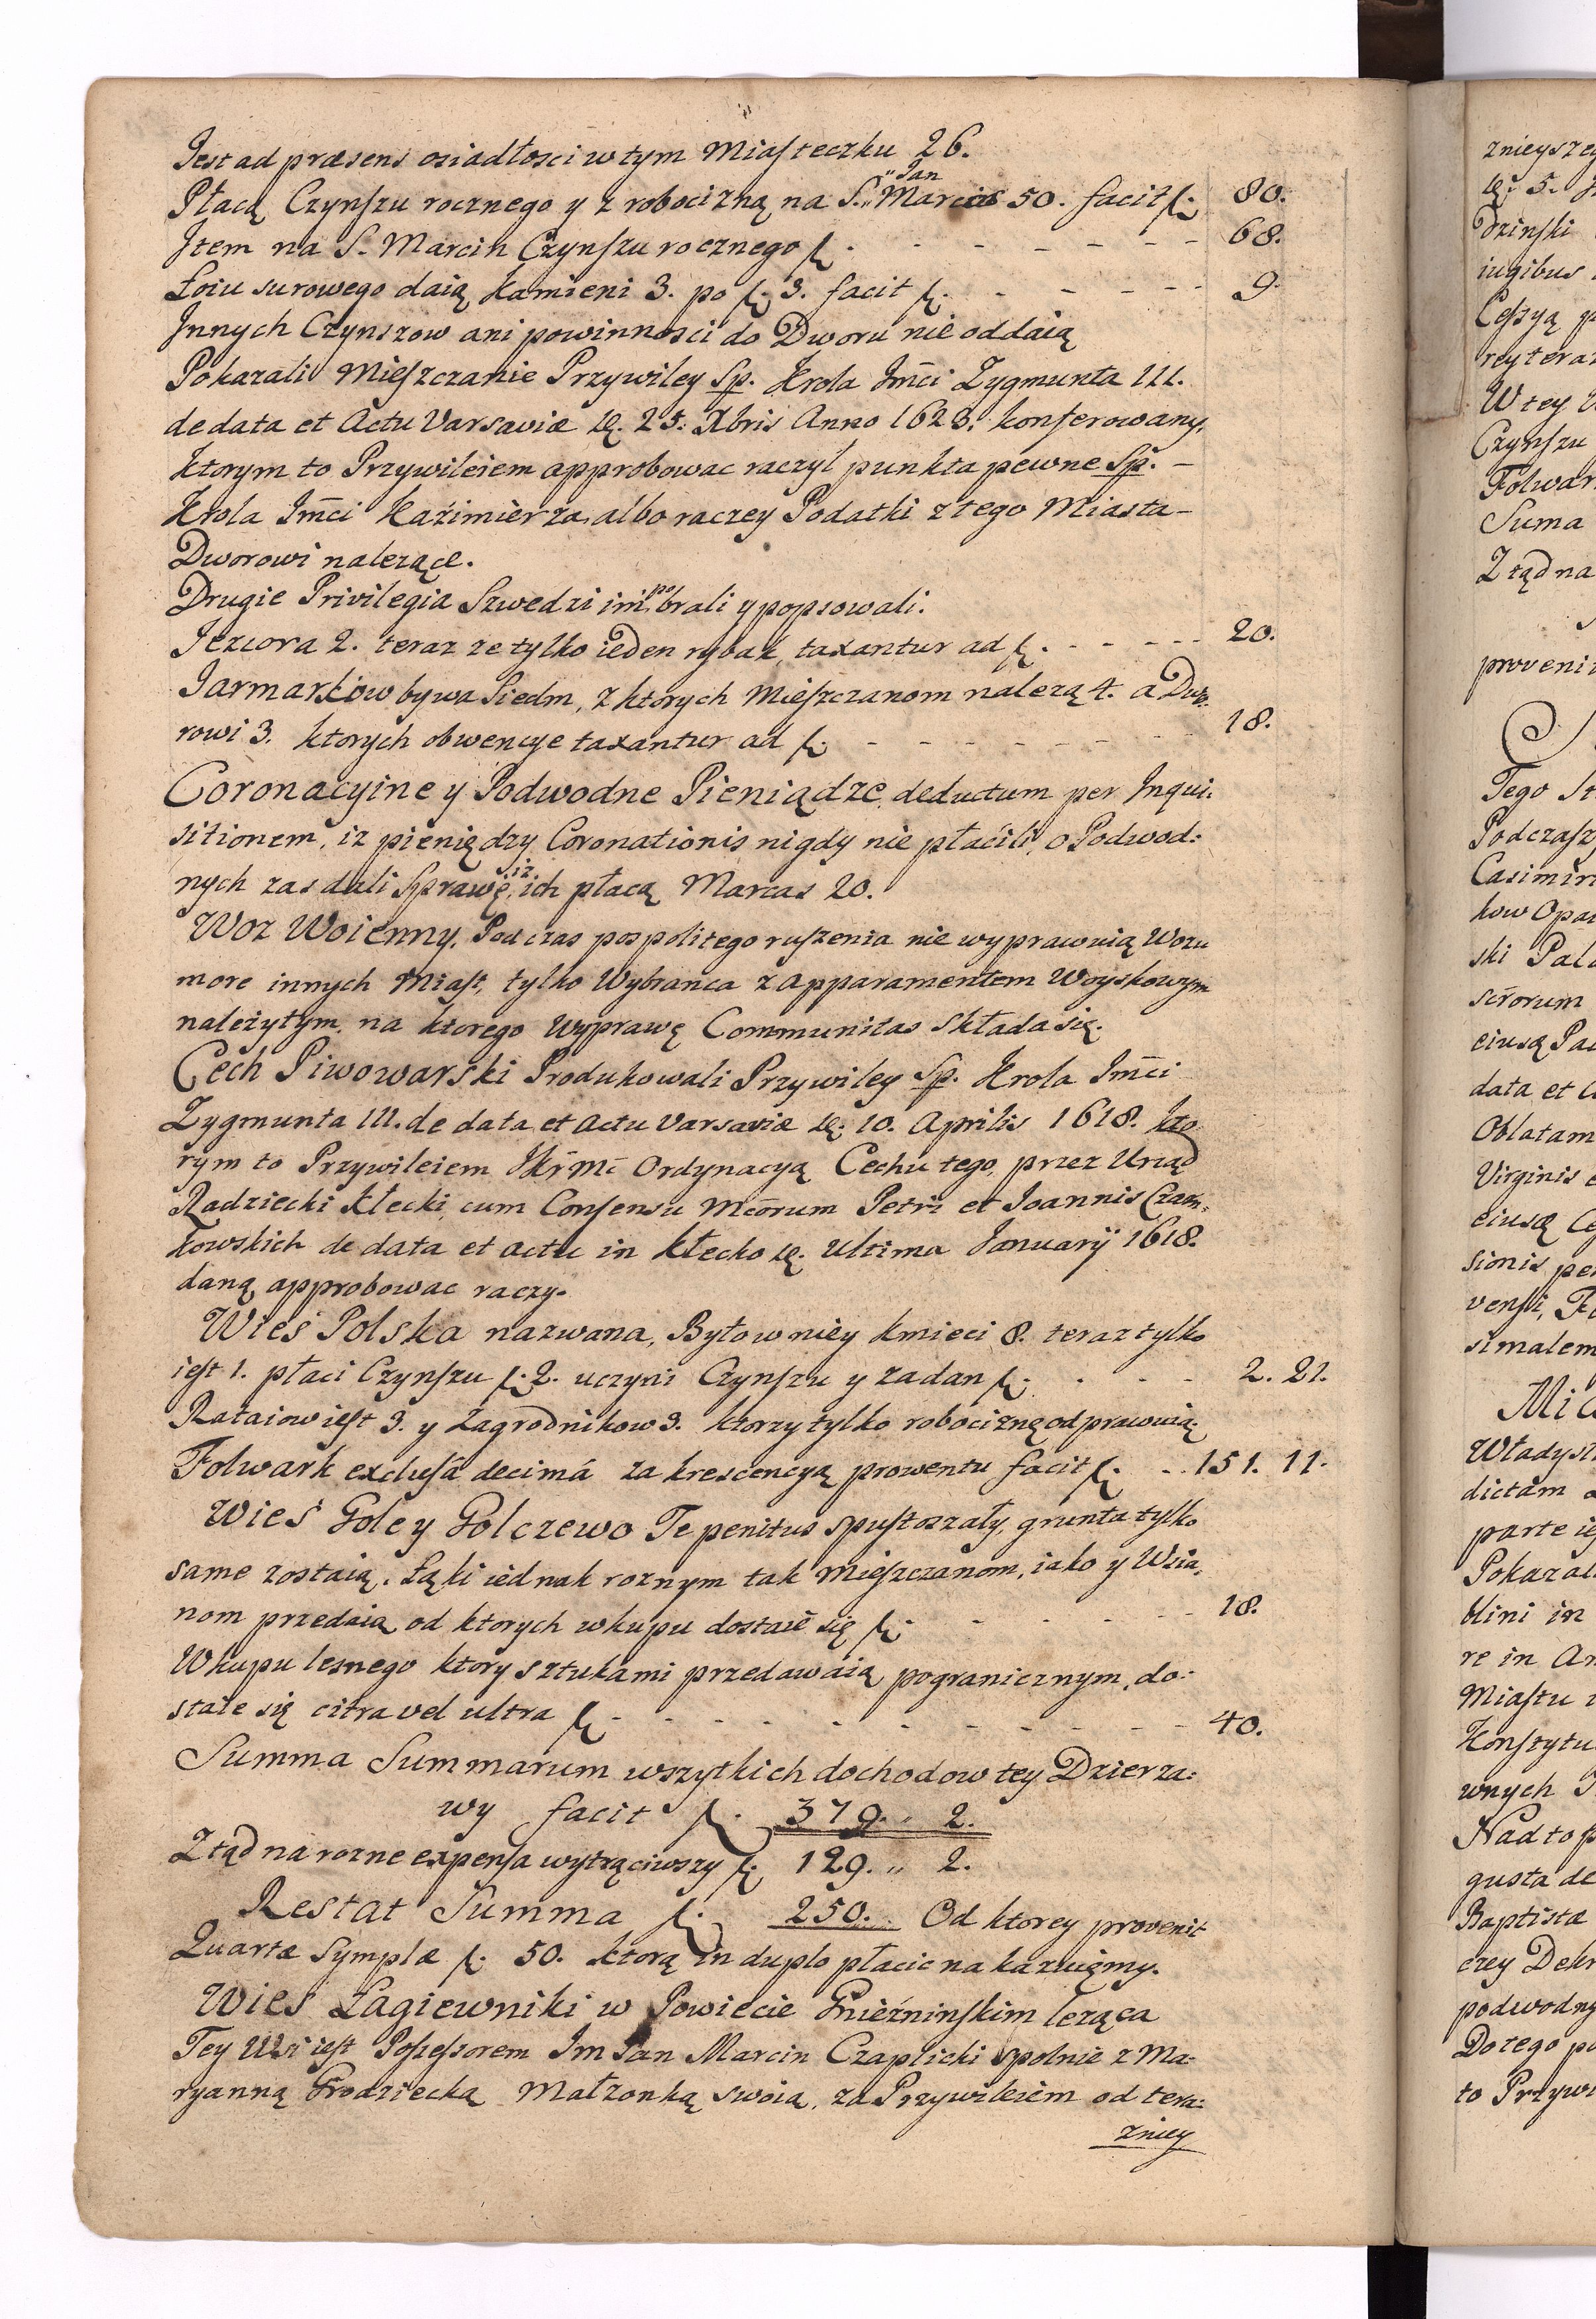 Jest ad præsens osiadłosci w tym Miasteczku 26.
Płacą Czynszu rocznego y z robocizną na S. Jan Marcas 50. facit f. 80.
Jtem na S. Marcin Czynszu rocznego f. - - - - - - 68.
Łoiu surowego daią Kamieni 3. po f. 3. facit f. - - - - - 9.
Jnnych Czynszow ani powinnosci do Dworu nie oddaią
Pokazali Mieszczanie Przywiley Sp. Krola Jmci Zygmunta III.
de data et Actu Varsaviæ d. 25. Xbris Anno 1623. konferowany,
ktorym to Przywileiem approbowac raczył punkta pewne Sp. -
Krola Jmci Kazimierza, albo raczey Podatki z tego Miasta -
Dworowi nalezące.
Drugie Privilegia Szwedzi im pobrali y popsowali.
Jeziora 2. teraz ze tylko ieden rybak, taxantur ad f. - - - - 20.
Jarmarkow bywa Siedm, z ktorych Mieszczanom nalezą 4. a Dwo-
rowi 3. ktorych obwencye taxantur ad f. - - - - - - - 18.
Coronacyine y Podwodne Pieniądze, deductum per Inqui:
sitionem, iz pieniędzy Coronationis nigdy nie płacili, o Podwod:
nych zas dali Sprawę, iz ich płacą Marcas 20.
Woz Woienny. Podczas pospolitego ruszenia nie wyprawuią Wozu
more innych Miast, tylko Wybranca z apparamentem Woyskowym
należytym, na ktorego wyprawę Communitas składa się.
Cech Piwowarski Produkowali Przywiley Sp. Krola Jmci
Zygmunta III. de data et actu Varsaviæ d. 10. Aprilis 1618. kto
rym to Przywileiem JKr Mc Ordynacyą Cechu tego, przez Urząd
Radziecki Kłecki, cum Consensu Mcorum Petri et Joannis Czarn:
kowskich de data et actu in Kłecko d. Ultima Januarij 1618.
daną approbowac raczy.
Wieś Polska nazwana, Było w niey Kmieci 8. teraz tylko
iest 1. płaci Czynszu f. 2. uczyni Czynszu y zadan f. - - - - 2. 21.
Rataiow iest 3. y Zagrodnikow 3. ktorzy tylko robociznę odprawuią.
Folwark exclusâ decimâ za krescencyą prowentu facit f. - - 151. 11.
Wieś Gole y Golczewo Te penitus spustoszały, grunta tylko
same zostaią. Łąki iednak roznym tak Mieszczanom, iako y Wsia,
nom przedaią od ktorych wkupu dostaie się f. - - - - - 18.
Wkupu lesnego ktory sztukami przedawaią pogranicznym, do:
staie się citra vel ultra f. - - - - - - - - - 40.
Summa Summarum wszytkich dochodow tey Dzierza:
wy facit f. 379. „ 2.
Ztąd na rozne expensa wytrąciwszy f. 129. „ 2.
Restat Summa f. 250. Od ktorey provenit
Quartæ Symplæ f. 50. ktorą in duplo płacic nakazuiemy.
Wieś Łagiewniki w Powiecie Gnieźninskim leząca
Tey Wsi iest Possessorem Jm Pan Marcin Czaplicki spolnie z Ma:
ryanną Grodziecką Małzonką swoią, za Przywileiem od tera:
zniey
znieyszeg
d. 5.
Dzinski
iugibus
Cessyą
rey teraz
W tey
Czynszu
Folwar
Suma
Ztąd na
proveni
Tego
Podczasz
Casimir
kow Opa
ski Pala
scrorum
eiusq Pa
data et
Oblatam
Virginis
eiusq
sionis pe
vensi,
simalem
Mia
Władysł
dictam
parte ie
Pokazal
blini in
re in An
Miastu
Konstytu
wnych
Nad to
gusta de
Baptistæ
czey Dekr
podwodny
Do tego po
to Przywi